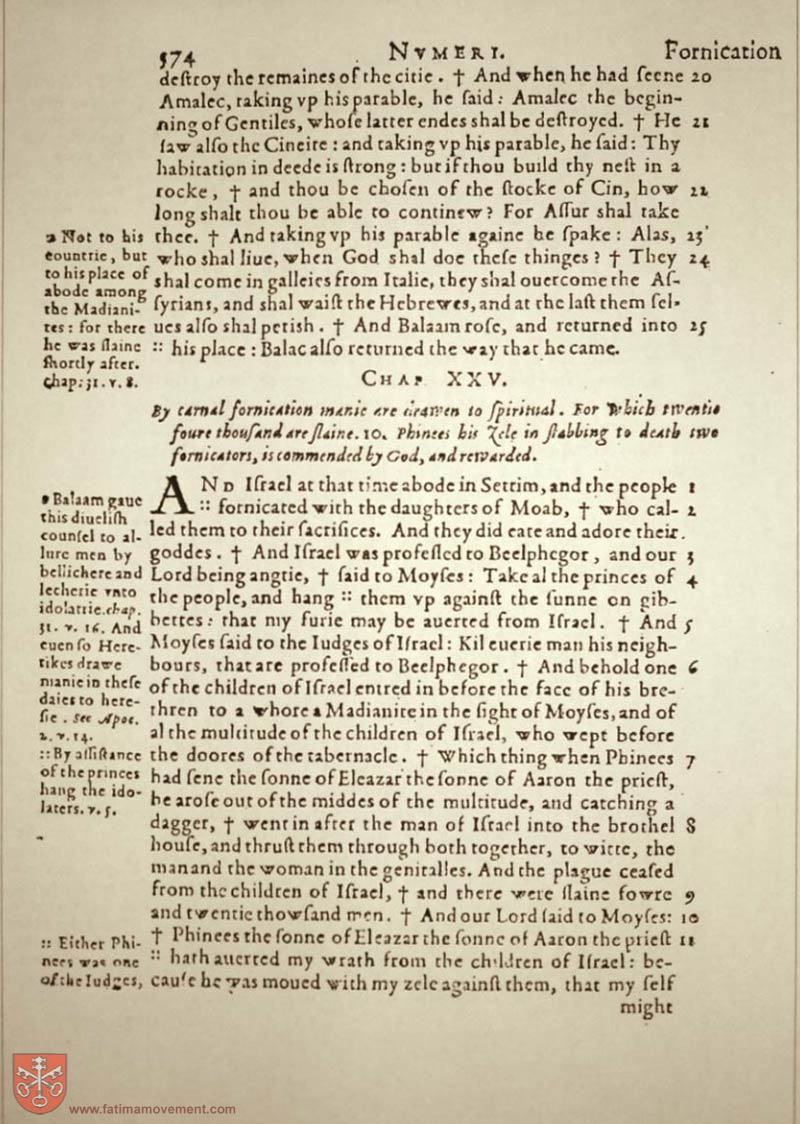 574 NVMERI. Fornication
deſtroy the remaines of the citie. † And when he had ſeene 20
Amalec, taking vp his parable, he ſaid: Amalec the begin-
ning of Gentiles, whoſe latter endes shal be deſtroyed. † He 21
ſaw alſo the Cineite: and taking vp his parable, he ſaid: Thy
habitation in deede is ſtrong: but if thou build thy neſt in a
rocke, † and thou be choſen of the ſtocke of Cin, how 22
long shalt thou be able to continew? For Aſſur shal take
thee. † And taking vp his parable againe he ſpake: Alas, 23
who shal liue, when God shal doe theſe thinges? † They 24
shal come in galleies from Italie, they shal ouercome the Aſ-
ſyrians, and shal waiſt the Hebrewes, and at the laſt them ſel-
ues alſo shal perish. † And Balaam roſe, and returned into 25
:: his place: Balac alſo returned the way that he came.
:: Not to his
countrie, but
to his place of
abode among
the Madiani-
tes: for there
he was ſlaine
ſhortly after.
Chap. 31. v. 8.
CHAP XXV.
By carnal fornication manie are drawen to ſpiritual. For which twentie
foure thouſand are ſlaine. 10. Phinees his zele in ſtabbing to death two
fornicators, is commended by God, and rewarded.
AND Iſrael at that time abode in Settim, and the people 1
:: fornicated with the daughters of Moab, † who cal- 2
led them to their ſacrifices. And they did eate and adore their
goddes. † And Iſrael was profeſſed to Beelphegor, and our 3
Lord being angrie, † ſaid to Moyſes: Take al the princes of 4
the people, and hang :: them vp againſt the ſunne on gib-
bettes: that my furie may be auerted from Iſrael. † And 5
Moyſes ſaid to the Iudges of Iſrael: Kil euerie man his neigh-
bours, that are profeſſed to Beelphegor. † And behold one 6
of the children of Iſrael entred in before the face of his bre-
thren to a whore a Madianite in the ſight of Moyſes, and of
al the multitude of the children of Iſrael, who wept before
the doores of the tabernacle. † Which thing when Phinees 7
had ſene the ſonne of Eleazar the ſonne of Aaron the prieſt,
he aroſe out of the middes of the multitude, and catching a
dagger, † went in after the man of Iſrael into the brothel 8
houſe, and thruſt them through both together, to witte, the
man and the woman in the genitalles. And the plague ceaſed
from the children of Iſrael, † and there were ſlaine fowre 9
and twentie thowſand men. † And our Lord ſaid to Moyſes: 10
† Phinees the ſonne of Eleazar the ſonne of Aaron the prieſt 11
:: hath auerted my wrath from the children of Iſrael: be-
cauſe he was moued with my zele againſt them, that my ſelf
might
Balaam gaue
this diueliſh
counſel to al-
lure men by
bellichere and
lecherie vnto
idolatrie. chap.
31. v. 16. And
euen ſo Here-
tikes drawe
manie in theſe
daies to here-
ſie. See Apoc.
2. v. 14.
:: By aſſiſtance
of the princes
hang the ido-
laters. v. 5.
:: Either Phi-
nees was one
of the Iudges,
www.fatimamovement.com